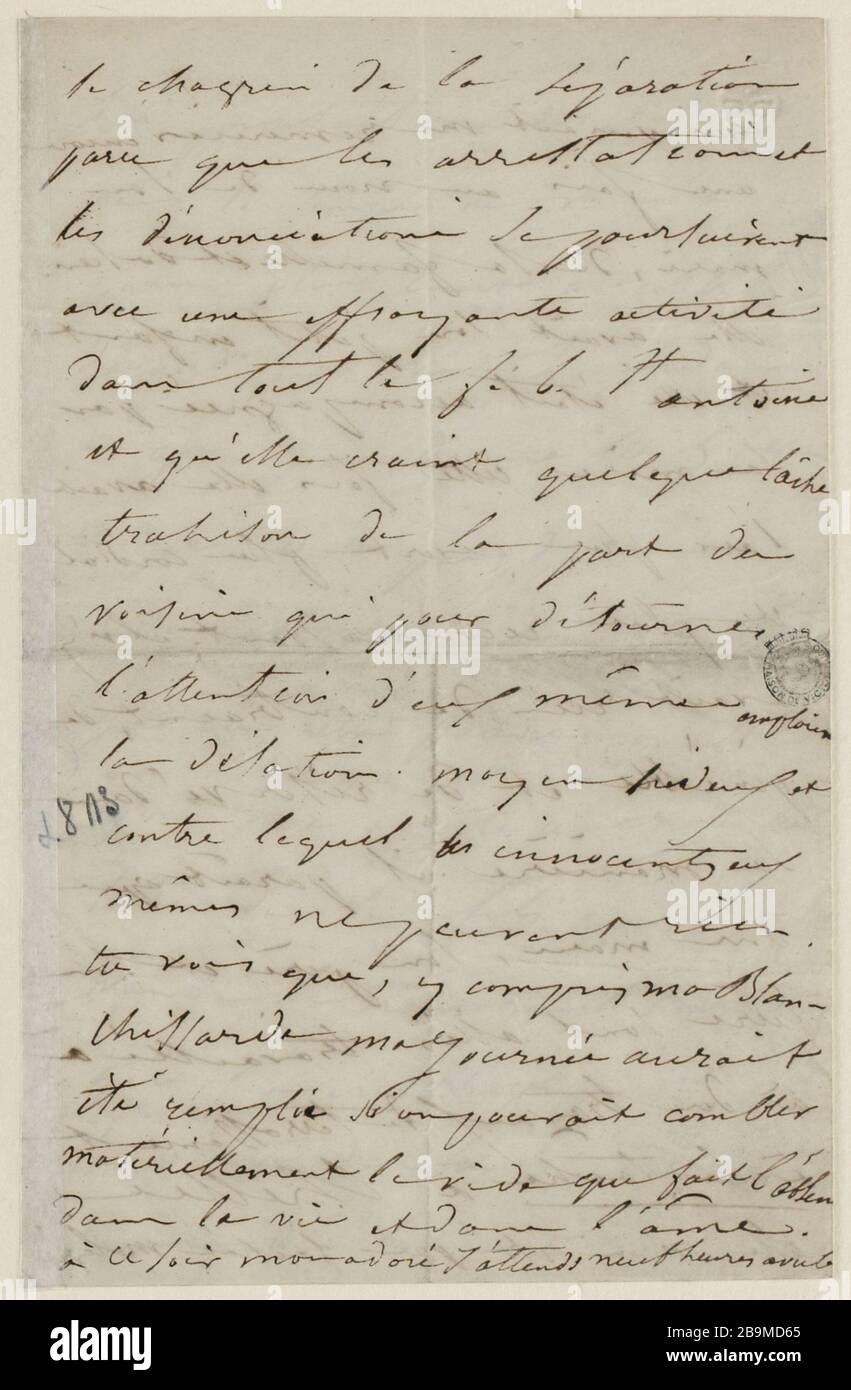 le chagrin de la séparation
parce que les arrestations et
les dénonciations se poursuivent
avec une effrayante activité
dans tout le f. b. St antoine
et qu'elle craint quelque lâche
trahison de la part de
voisins qui pour détourner
l'attention d'eux même emploient
la délation. moyen hideux et
contre lequel les innocents eux
mêmes ne peuvent rien.
tu vois que, y compris ma Blan-
chissarde ma journée aurait
été remplie si on pouvait combler
matériellement le vide que fait l'absence
dans la vie et dans l'âme.
à ce soir mon adoré j'attends neuf heures avec
L8113
alamy
Image ID: 2B9MD65
www.alamy.com